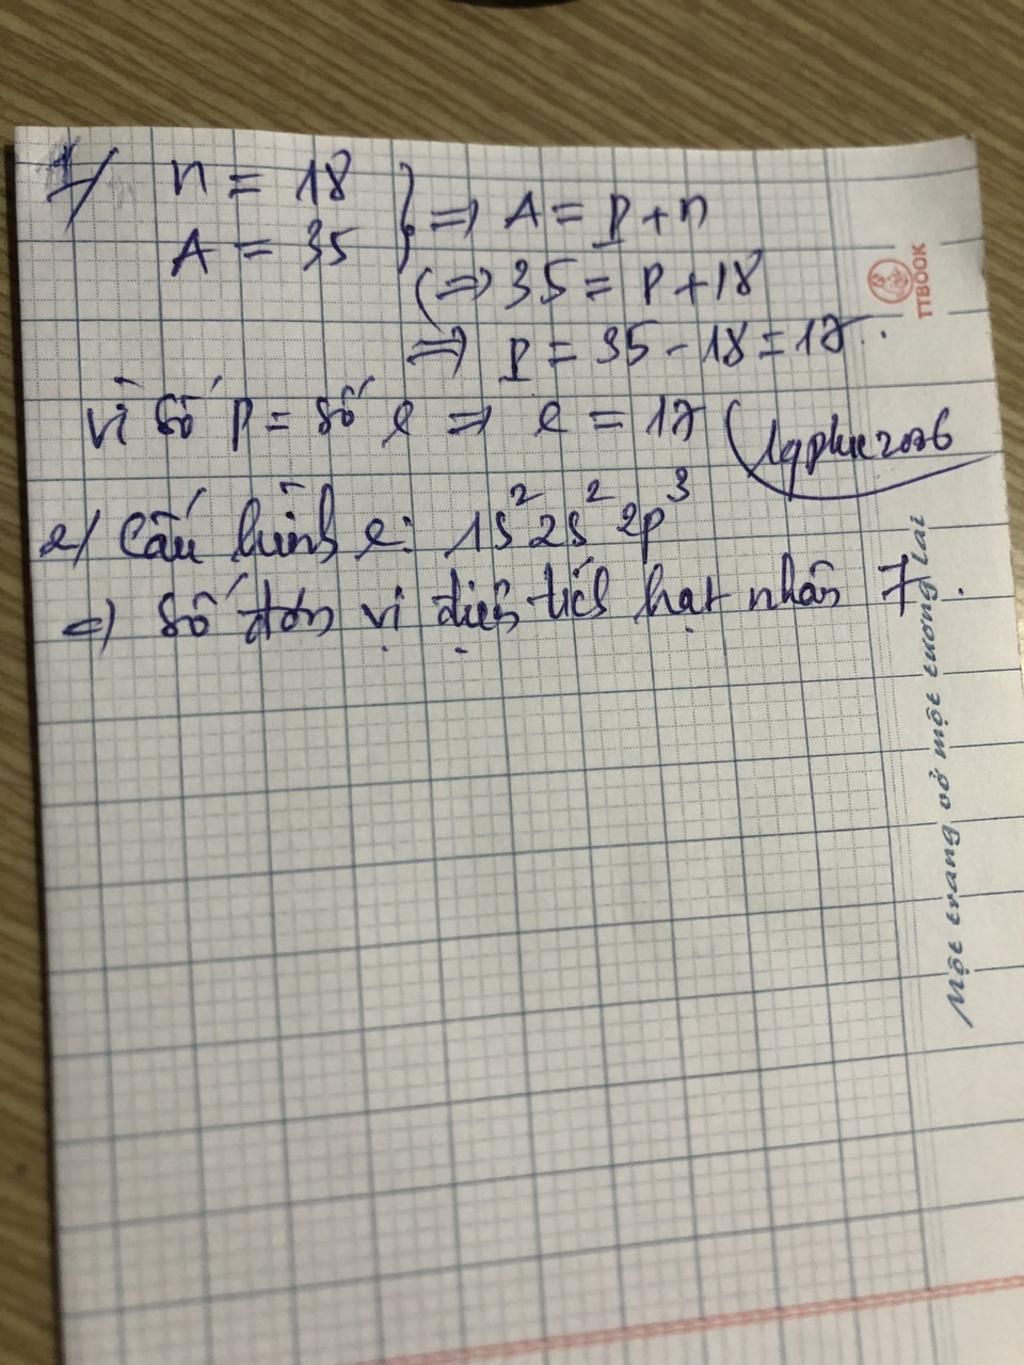 1/ n = 18 } => A = p + n
A = 35
(=> 35 = p + 18
=> p = 35 - 18 = 17.
vì số p = số e => e = 17 (lqphuc2006
2/ Cấu hình e: 1s² 2s² 2p³
=> số đơn vị điện tích hạt nhân 7.
TTBOOK
Một trang vở một tương lai